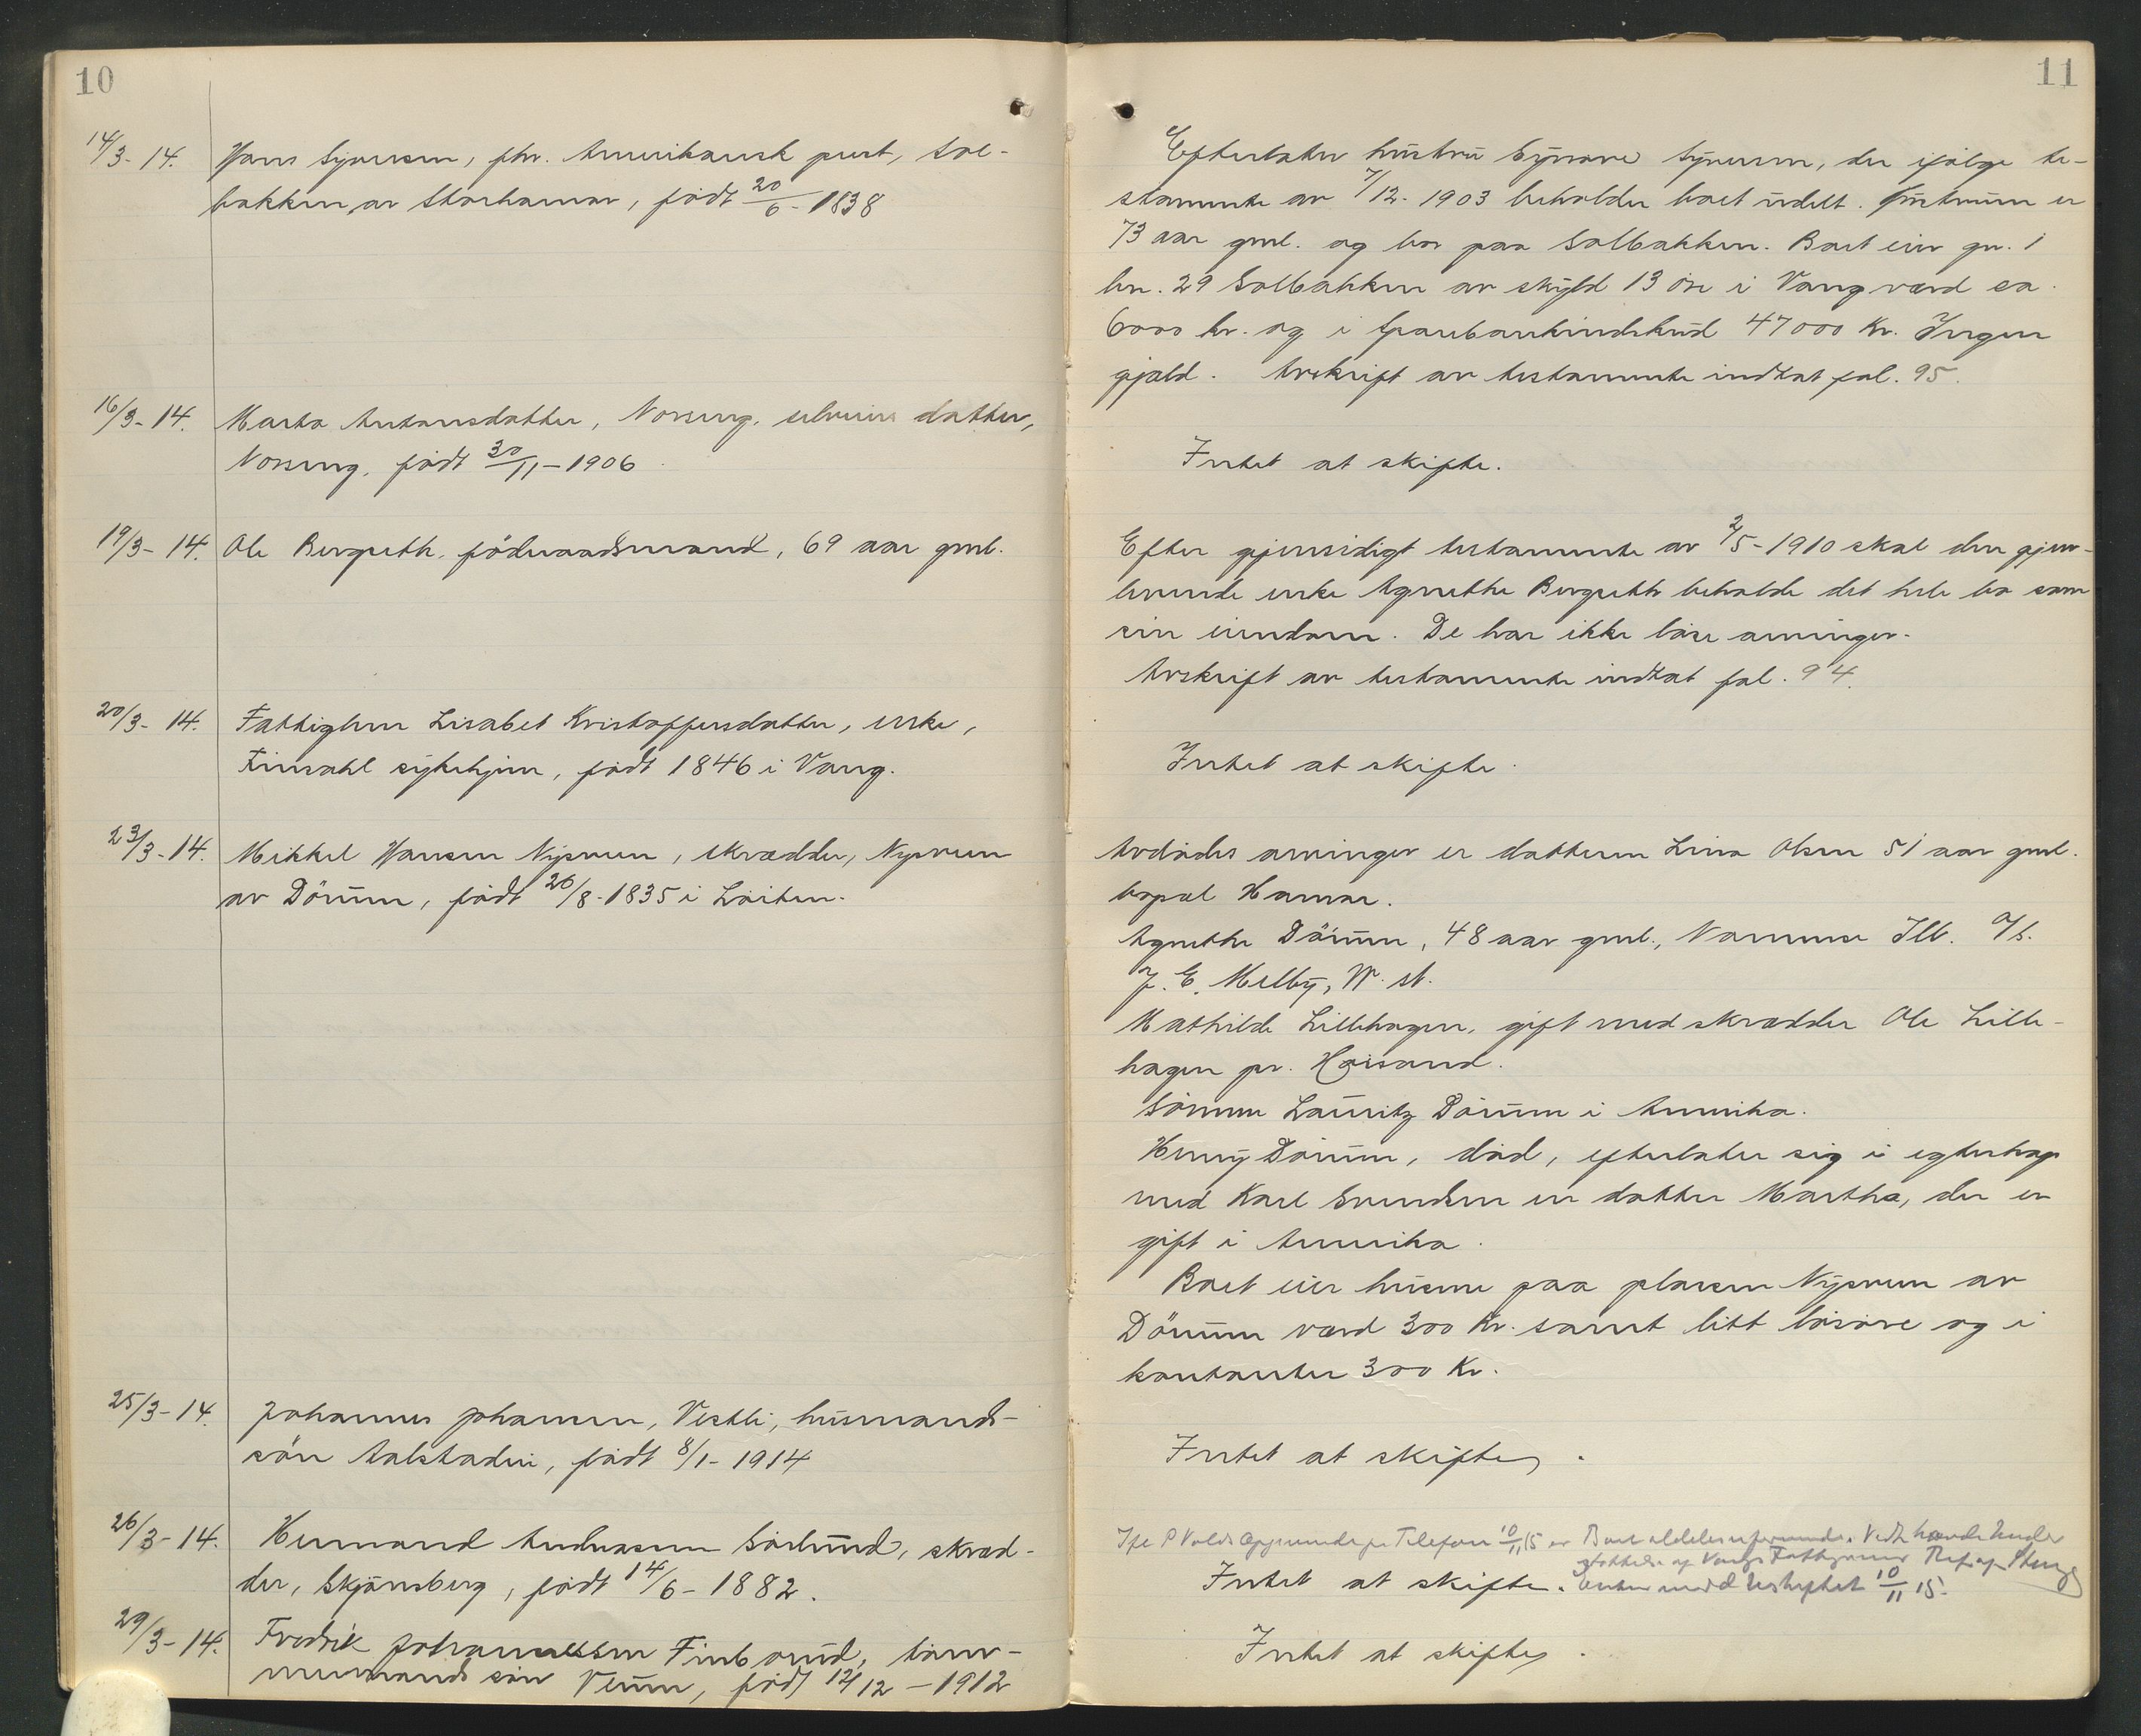 10
14/3-14. Hans Synesen, fhv. Amerikansk prest, Sol-
bakken av Storhamar, født 20/6-1838
16/3-14. Marta Antonsdatter, Norseng, selveiers datter,
Norseng, født 30/11-1906
19/3-14. Ole Berguth, föderaadsmand, 69 aar gml.
20/3-14. Fattiglem Lisabet Kristoffersdatter, enke,
Finsahl sykehjem, født 1846 i Vang.
23/3-14. Mikkel Hansen Nysveen, skrædder, Nysveen
av Dörum, født 26/8-1835 i Löiten.
25/3-14. Johannes Johansen, Vestli, husmands-
sön Aalstadeie, født 8/1-1914
26/3-14. Hermand Andreassen Sörlund, skræd-
der, Skjönsberg, født 14/6-1882.
29/3-14. Fredrik Johannessen Finborud, tömr-
mermands sön Veum, født 12/12-1912
11
Efterlater hustru Synnøve Synesen, der ifölge te-
stamente av 7/12-1903 beholder boet udelt. Hustruen er
73 aar gml. og bor paa Solbakken. Boet eier gn. 1
bn. 29 Solbakken av skyld 13 öre i Vang værd ca.
6000 kr. og i Sparebankindskud 47000 Kr. Ingen
gjæld. Avskrift av testamente indtat fol. 95.
Intet at skifte.
Efter gjensidigt testamente av 2/5-1910 skal den gjen-
levende enke Agnethe Berguth beholde det hele bo som
sin eiendom. De har ikke livsarvinger.
Avskrift av testamente indtat fol. 94.
Intet at skifte.
Avdödes arvinger er datteren Lina Olsen 51 aar gml.
bopæl Hamar.
Agnethe Dörum, 48 aar gml., Nammer Ill. %
J. E. Melby, W. st.
Mathilde Lillehagen, gift med skrædder Ole Lille-
hagen pr. Höisand.
Sönnen Lauritz Dörum i Amerika.
Henny Dörum, död, efterlater sig i egteskap
med Karl Svendsen en datter Martha, der er
gift i Amerika.
Boet eier husene paa plassen Nysveen av
Dörum værd 300 Kr. samt litt lösöre og i
kontanter 300 Kr.
Intet at skifte.
Telefon 10/11 15 er Boet aldeles
Vangs Fattigvæsen
Intet at skifte. 10/11 15.
Intet at skifte.